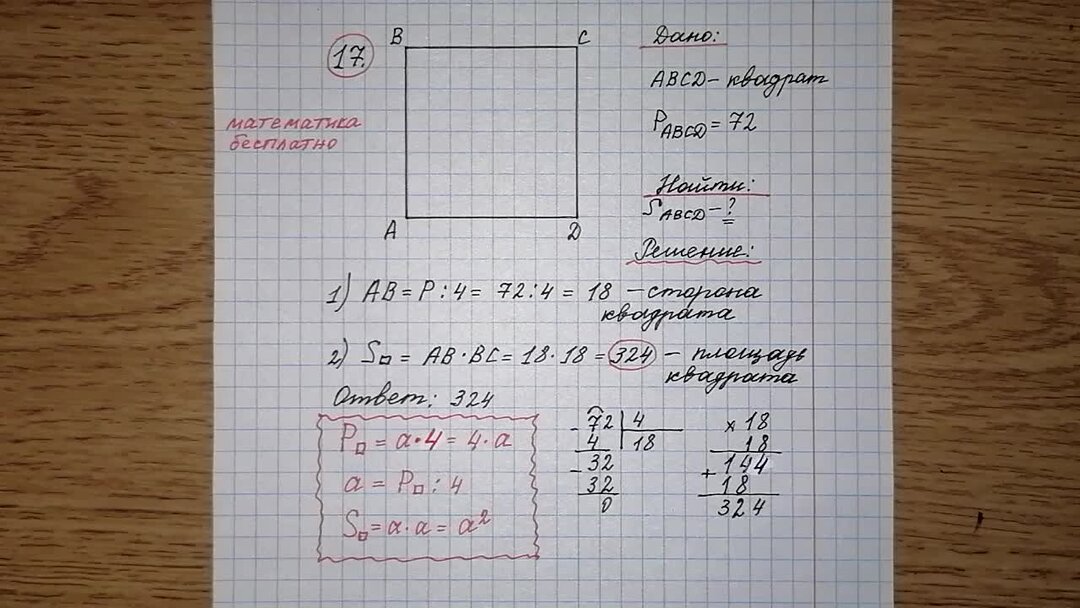 17.
B C
A D
математика
бесплатно
Дано:
ABCD – квадрат
P ABCD = 72
Найти:
S ABCD – ?
Решение:
1) AB = P : 4 = 72 : 4 = 18 – сторона
квадрата
2) S□ = AB · BC = 18 · 18 = 324 – площадь
квадрата
Ответ: 324
P□ = a · 4 = 4 · a
a = P□ : 4
S□ = a · a = a²
- 72 | 4
4 | 18
- 32
32
0
× 18
18
+ 144
18
324